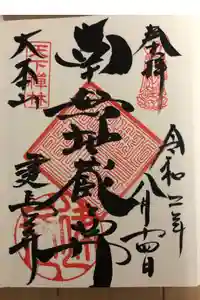 奉拝
令和二年
八月十四日
南無地蔵𦬇
天下禅林
大本山
建長寺